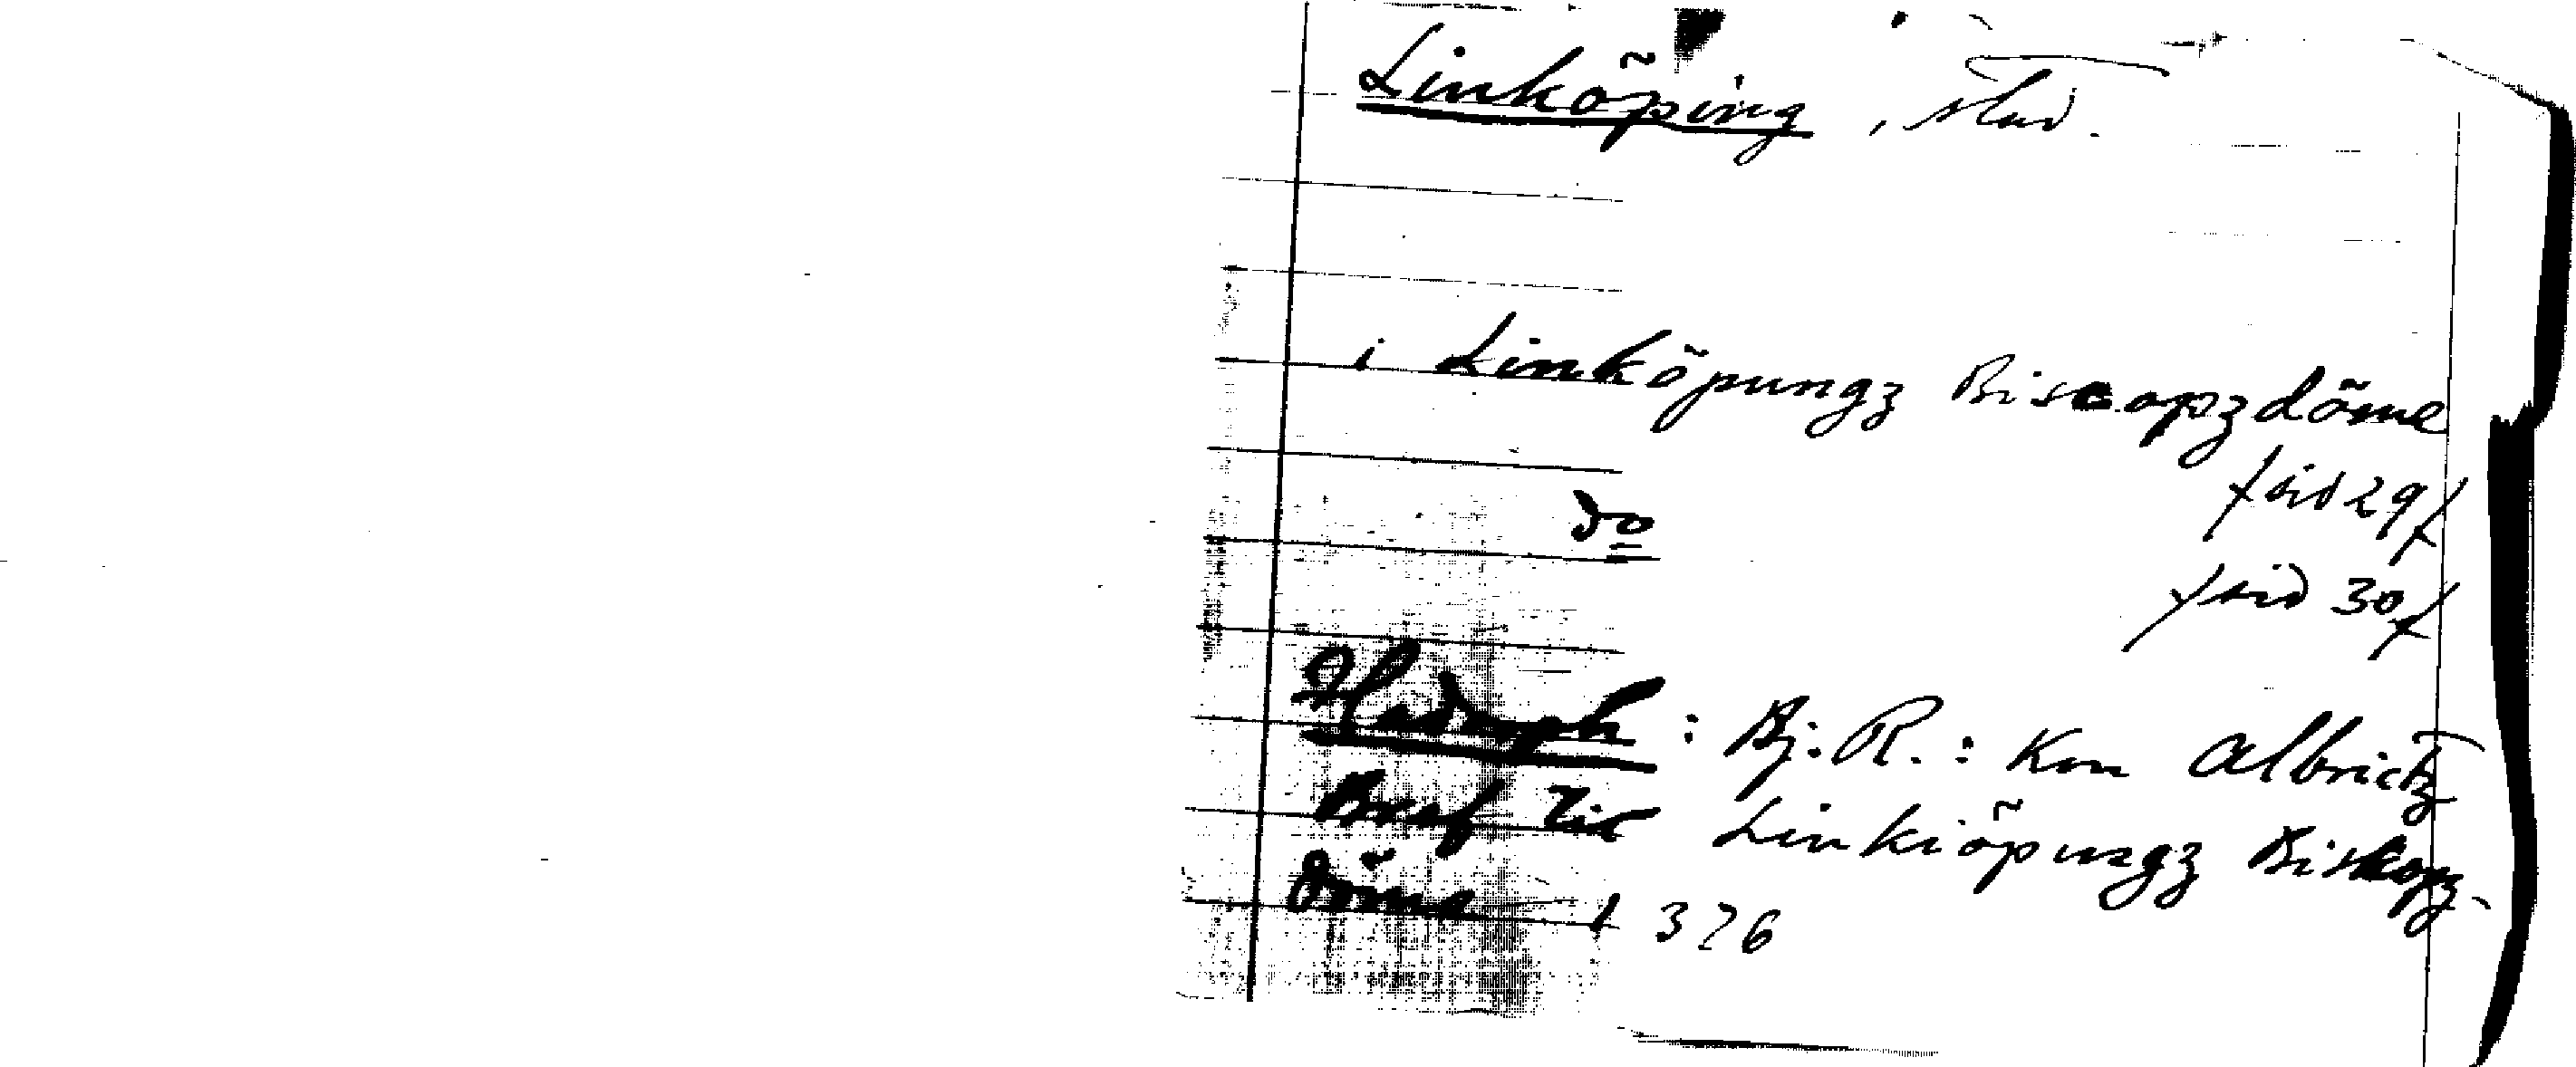 Linköping, stad.
i Linköpungz Biscopzdöme
/sid 29/
do
/sid 30/
Hadorph : Bj. R. : Kon Albrictz
Breef till Linkiöpungz Biskopz-
döme 1376